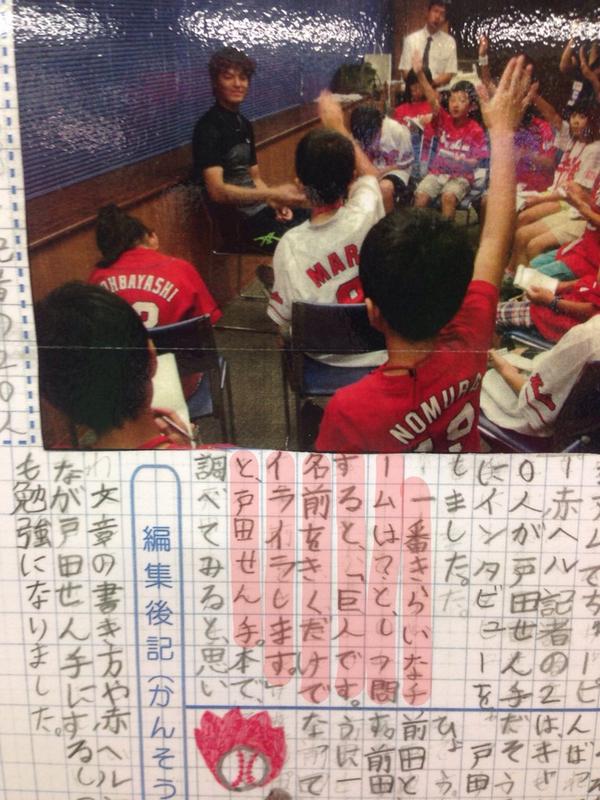 OHBAYASHI
MAR
NOMURA
19
ー赤ヘル記者の2
0人が戸田せん手
にインタビューを
しました。
「一番きらいなチ
ームは?」と、しつ問
すると、「巨人です。
名前をきくだけで
イライラします。」
と、戸田せん手。本で、
調べてみると、思い
んばれ
だそう
戸田
ひょう
前田と
す。前田
うに一
なって
編集後記(かんそう
文章の書き方や赤ヘル
なが戸田せん手にするし
も勉強になりました。
記者の20人